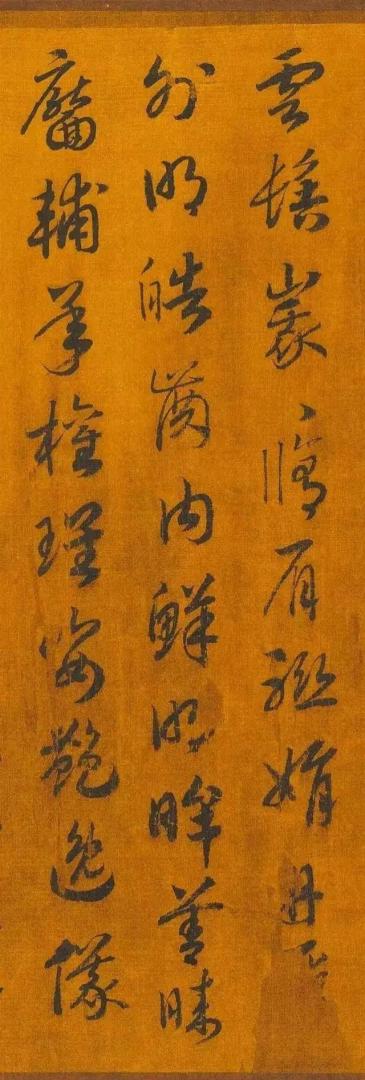 雲髻峩〻脩眉聯娟丹脣
外朗皓齒內鮮明眸善睞
靨輔承權瓌姿艷逸儀